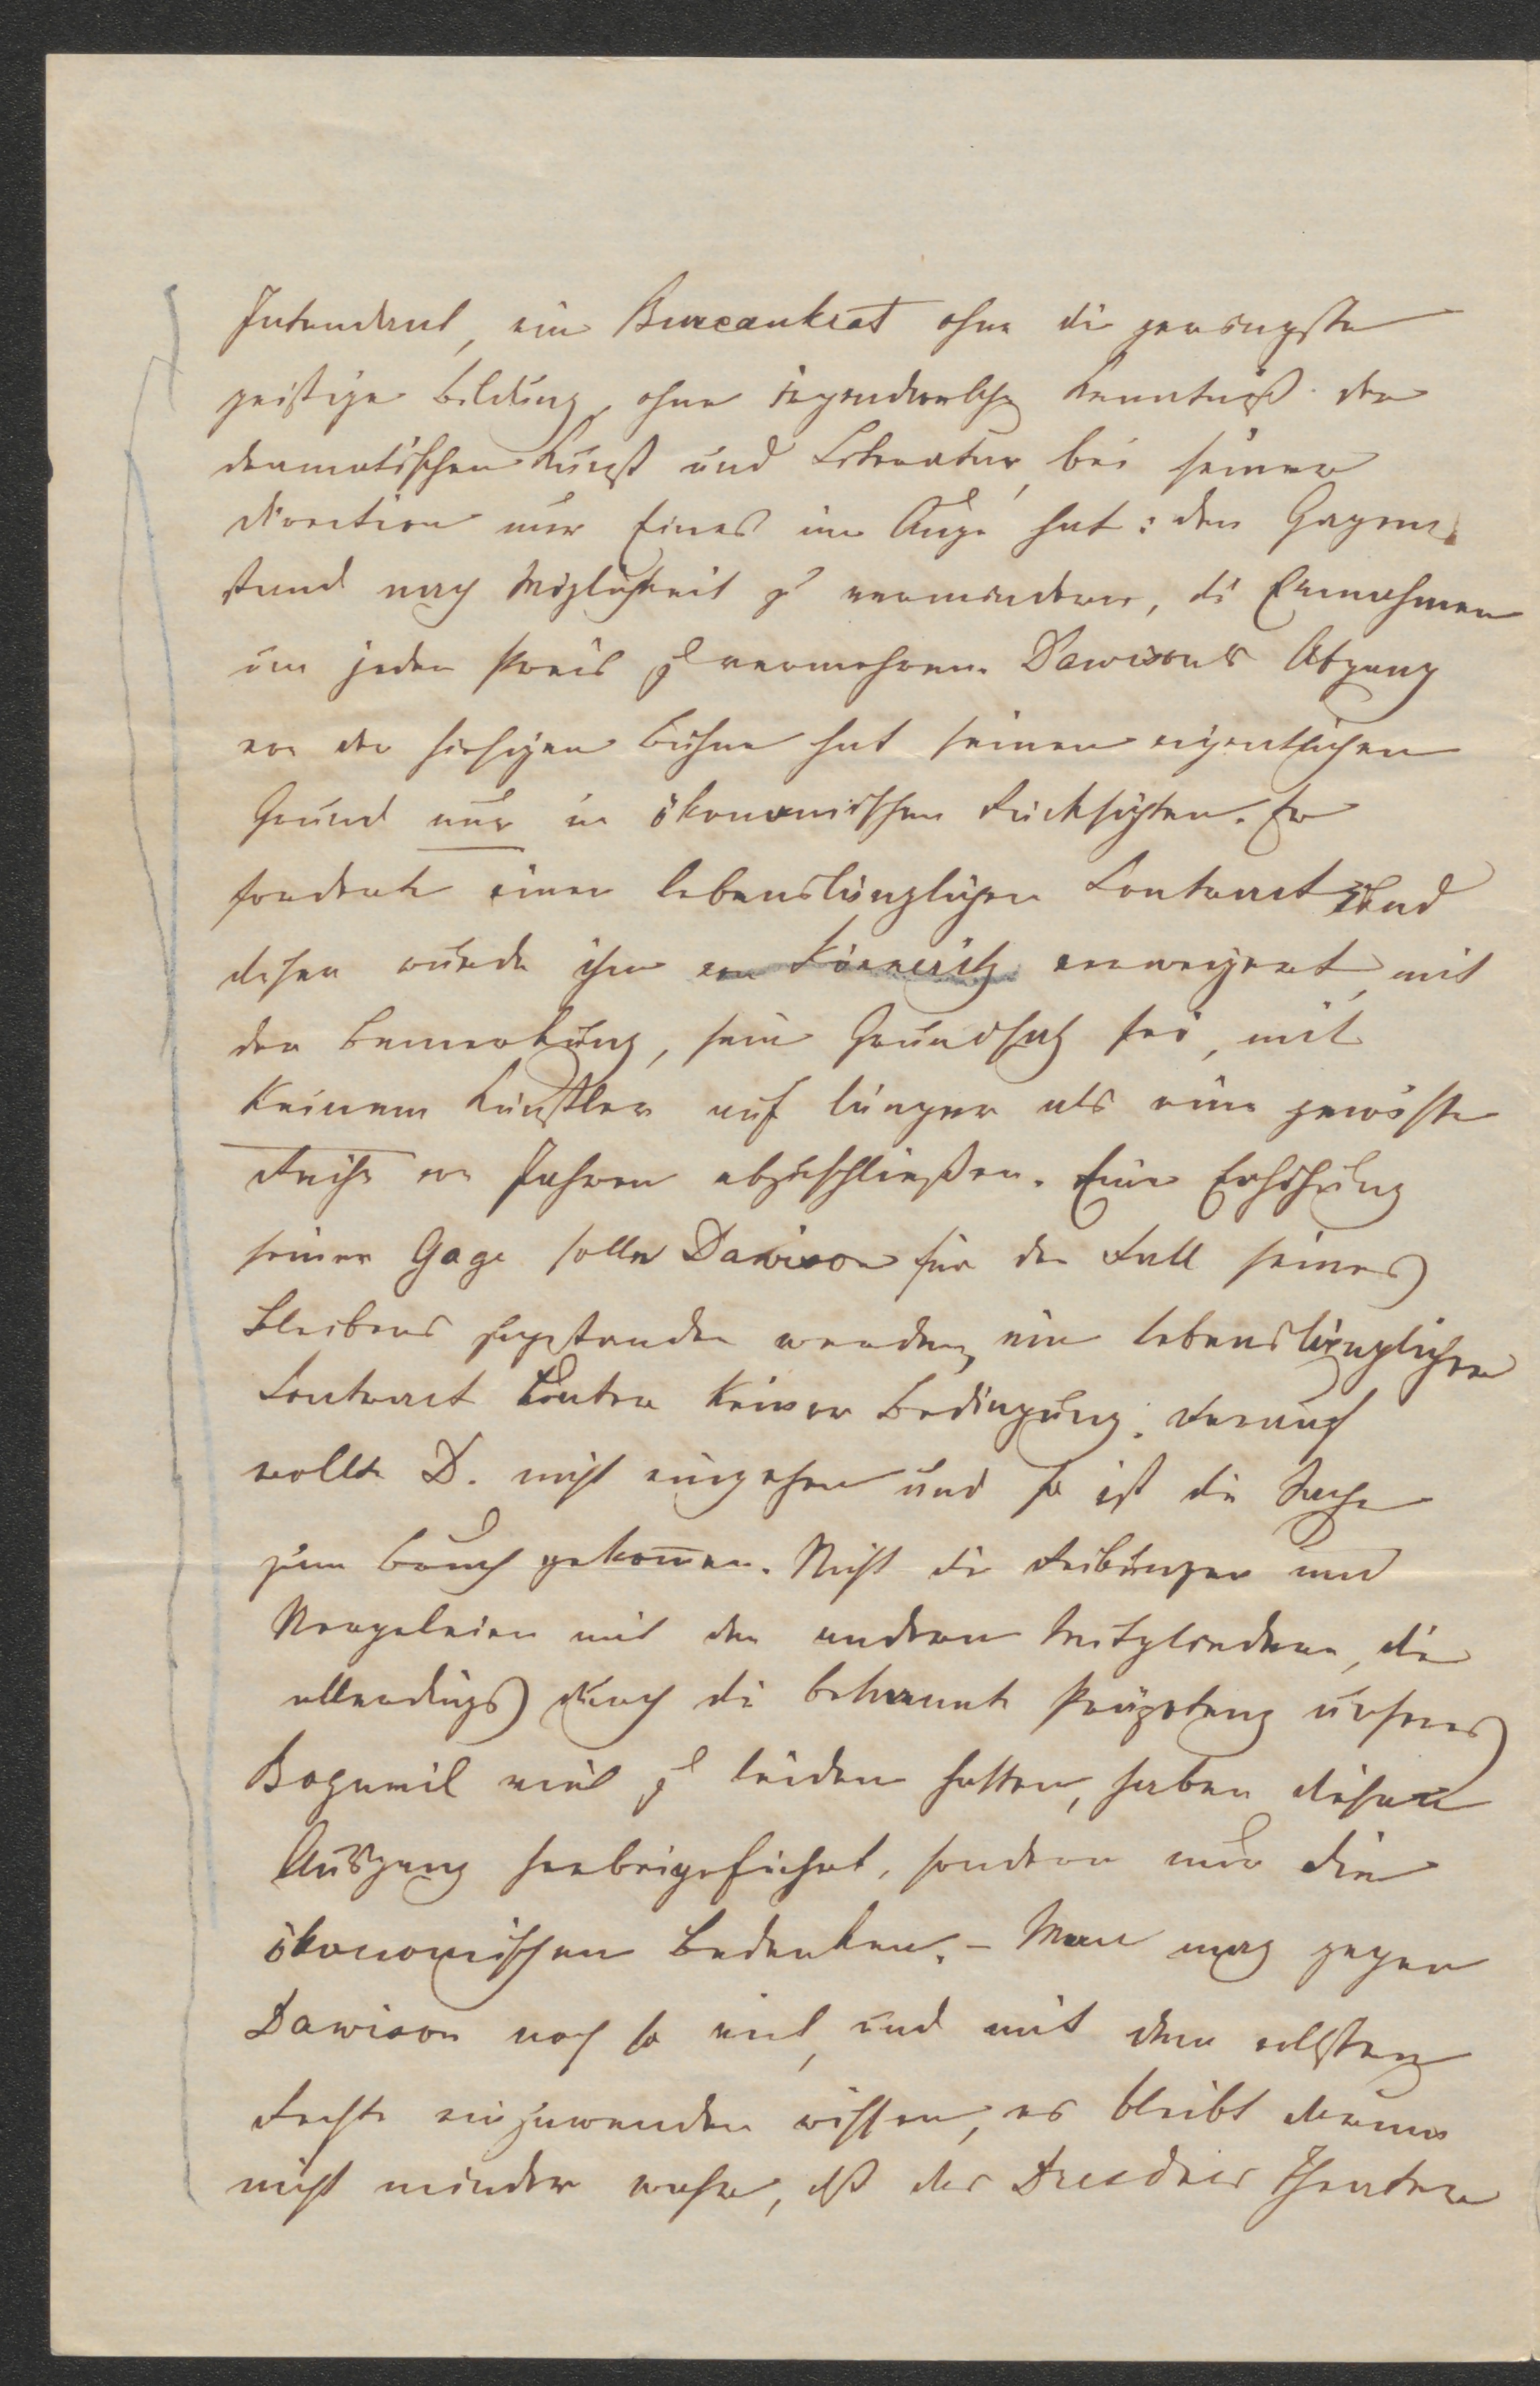 Intendant, ein Bureaukrat ohne die geringste
geistige Bildung, ohne irgendwelche Kenntniß der
dramatischen Kunst und Literatur, bei seiner
Direction nur Eines im Auge hat: den Gagen-
stand nach Möglichkeit zu vermindern, die Einnahmen
um jeden Preis zu vermehren. Dawisons Abgang
von der hiesigen Bühne hat seinen eigentlichen
Grund nur in ökonomischen Rücksichten. Er
forderte einen lebenslänglichen Contract und
dieser wurde ihm von Könneritz verweigert, mit
der Bemerkung, sein Grundsatz sei, mit
keinem Künstler auf länger als eine gewisse
Reihe von Jahren abzuschließen. Eine Erhöhung
seiner Gage solle Dawison für den Fall seines
Bleibens zugestanden werden, ein lebenslänglicher
Contract unter keiner Bedingung. Darauf
wollte D. nicht eingehen und so ist die Sache
zum Bruch gekommen. Nicht die Reibungen und
Nergeleien mit den anderen Mitgliedern, die
allerdings durch die bekannte Präpotenz unseres
Bogumil viel zu leiden hatten, haben diesen
Ausgang herbeigeführt, sondern nur die
ökonomischen Bedenken. – Man mag gegen
Dawison noch so viel, und mit dem vollsten
Rechte einzuwenden wissen, es bleibt darum
nicht minder wahr, daß das Dresdner Theater